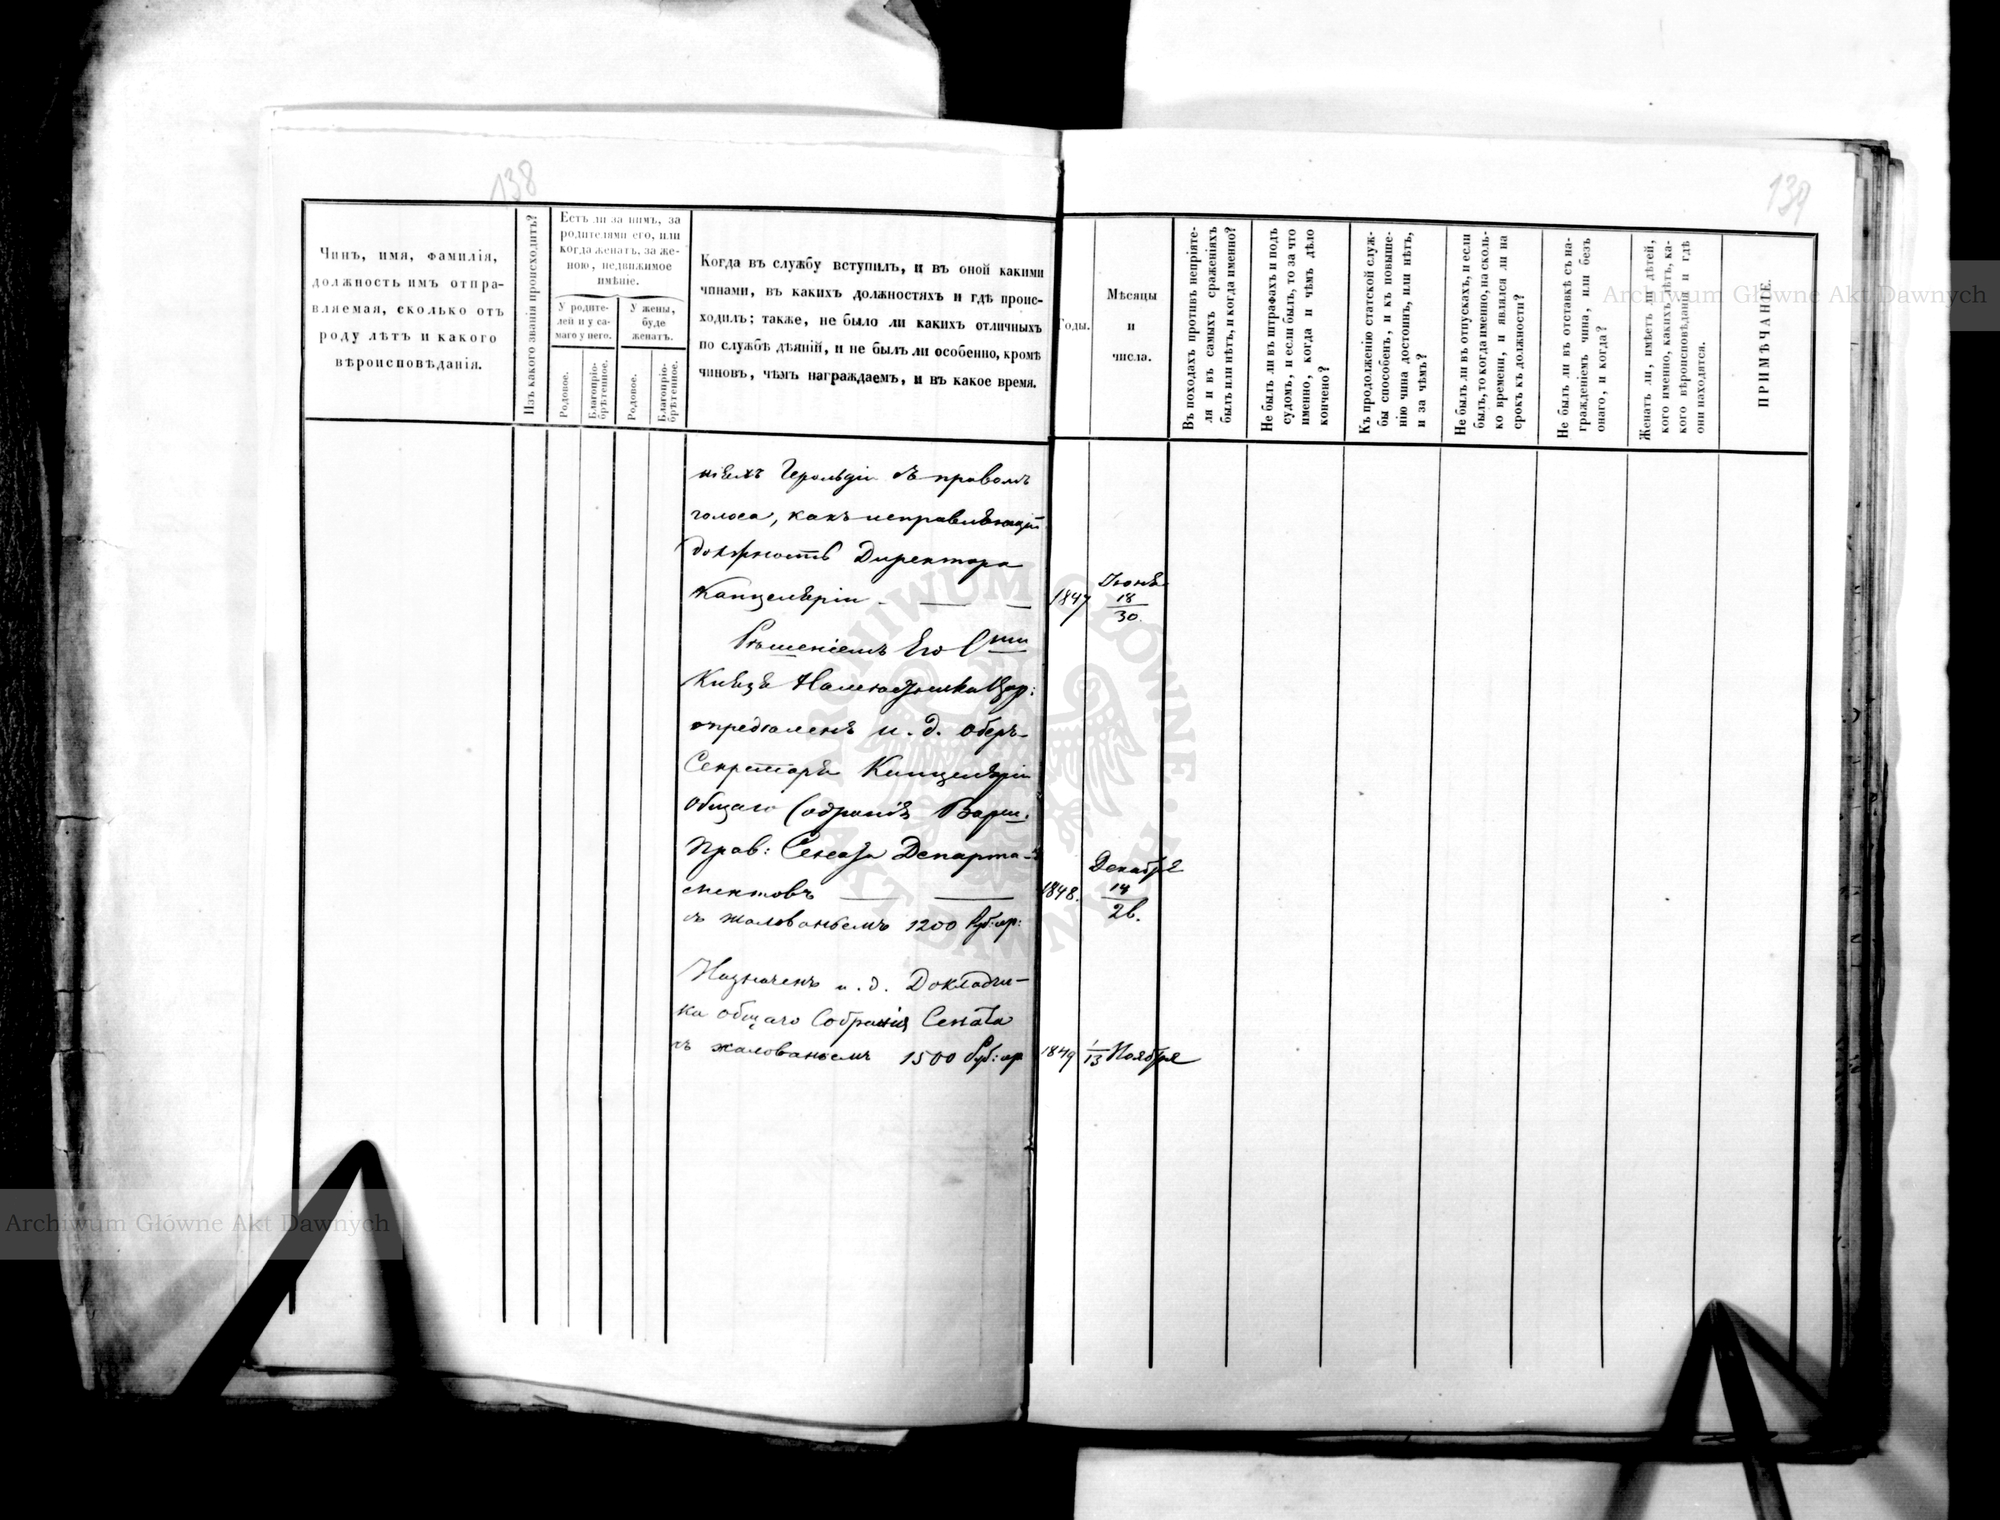 138
139
Чинъ, имя, фамилія,
должность имъ отпра-
вляемая, сколько отъ
роду лѣтъ и какого
вѣроисповѣданія.
Изъ какого званія происходитъ?
Есть ли за нимъ, за
родителями его, или
когда женатъ, за же-
ною, недвижимое
имѣніе.
У родите-
лей и у са-
маго у него.
У жены,
буде
женатъ.
Родовое.
Благопріо-
брѣтенное.
Родовое.
Благопріо-
брѣтенное.
Когда въ службу вступилъ, и въ оной какими
чинами, въ какихъ должностяхъ и гдѣ проис-
ходилъ; также, не было ли какихъ отличныхъ
по службѣ дѣяній, и не былъ ли особенно, кромѣ
чиновъ, чѣмъ награждаемъ, и въ какое время.
Годы.
Мѣсяцы
и
числа.
Въ походахъ противъ непріяте-
ля и въ самыхъ сраженіяхъ
былъ или нѣтъ, и когда именно?
Не былъ ли въ штрафахъ и подъ
судомъ, и если былъ, то за что
именно, когда и чѣмъ дѣло
кончено?
Къ продолженію статской служ-
бы способенъ, и къ повыше-
нію чина достоинъ, или нѣтъ,
и за чѣмъ?
Не былъ ли въ отпускахъ, и если
былъ, то когда именно, на сколь-
ко времени, и явился ли на
срокъ къ должности?
Не былъ ли въ отставкѣ съ на-
гражденіемъ чина, или безъ
онаго, и когда?
Женатъ ли, имѣетъ ли дѣтей,
кого именно, какихъ лѣтъ, ка-
кого вѣроисповѣданія и гдѣ
они находятся.
ПРИМѢЧАНІЕ.
ніемъ Герольдіи съ правомъ
голоса, какъ исправляющій
должность Директора
Канцеляріи — — 1847 Іюня 18/30.
Рѣшеніемъ Его Сти
Князя Намѣстника Цар:
опредѣленъ и. д. Оберъ-
Секретаря Канцеляріи
Общаго Собранія Варш.
Прав: Сената Департа-
ментовъ — — 1848. Декабря 14/26.
съ жалованьемъ 1200 руб: ср:
Назначенъ и. д. Докладчи-
ка общаго Собранія Сената
съ жалованьемъ 1500 руб: ср 1849 1/13 Ноября
Archiwum Główne Akt Dawnych
Archiwum Główne Akt Dawnych
ARCHIWUM GŁÓWNE AKT DAWNYCH